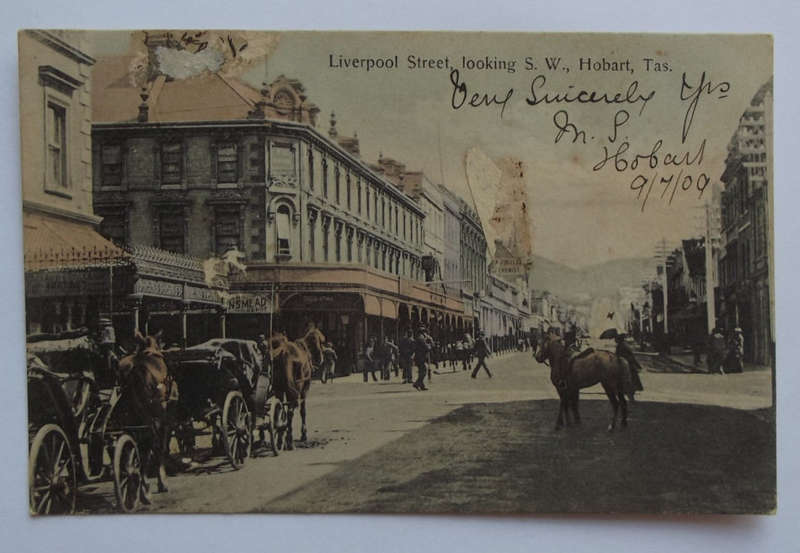 Liverpool Street, looking S. W., Hobart, Tas.
Very Sincerely Yrs
M. S.
Hobart
9/7/09
NSMEAD